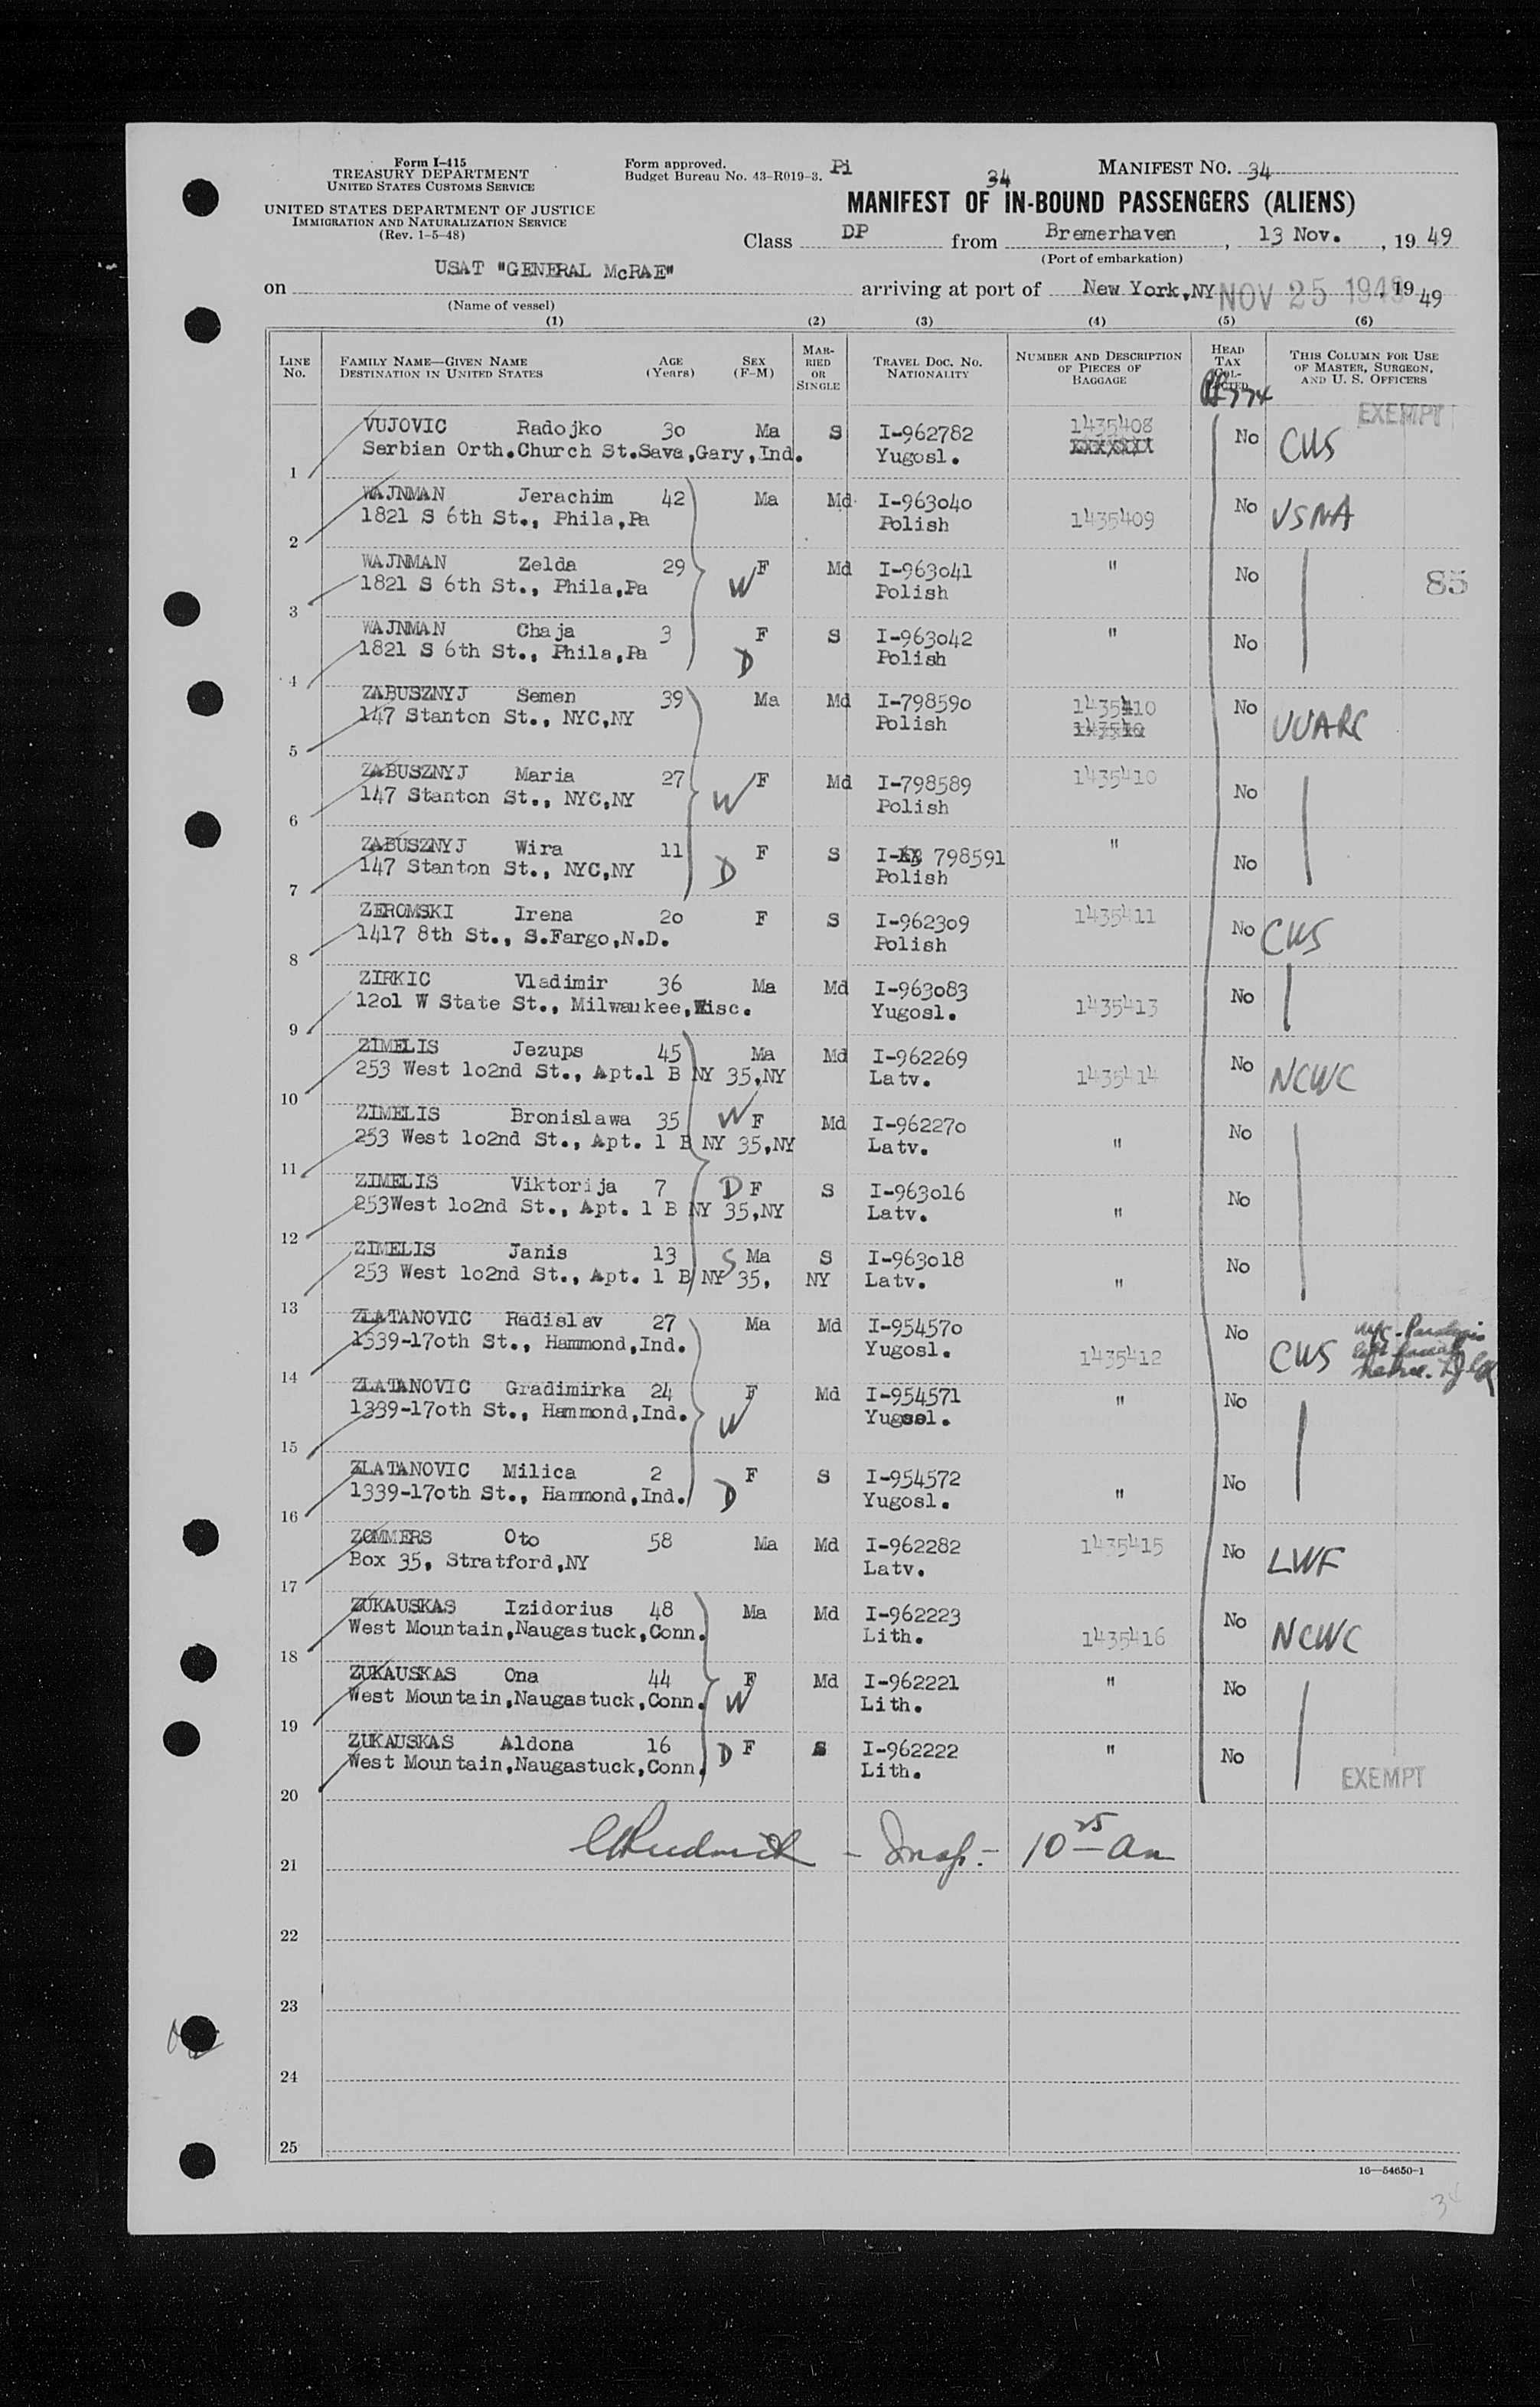 Form I-415
TREASURY DEPARTMENT
UNITED STATES CUSTOMS SERVICE
UNITED STATES DEPARTMENT OF JUSTICE
IMMIGRATION AND NATURALIZATION SERVICE
(Rev. 1-5-48)
Form approved.
Budget Bureau No. 43-R019-3.
Pi
34
MANIFEST NO. 34
MANIFEST OF IN-BOUND PASSENGERS (ALIENS)
Class DP from Bremerhaven, 13 Nov., 19 49
(Port of embarkation)
on USAT "GENERAL McRAE" arriving at port of New York,NY NOV 25 1949, 19 49
(Name of vessel)
(1) (2) (3) (4) (5) (6)
LINE NO. FAMILY NAME—GIVEN NAME DESTINATION IN UNITED STATES AGE (Years) SEX (F-M) MARRIED OR SINGLE TRAVEL DOC. NO. NATIONALITY NUMBER AND DESCRIPTION OF PIECES OF BAGGAGE HEAD TAX COLLECTED THIS COLUMN FOR USE OF MASTER, SURGEON, AND U. S. OFFICERS
EXEMPT
VUJOVIC Radojko 30 Ma S I-962782 1435408 No CWS
1 Serbian Orth.Church St.Sava,Gary,Ind. Yugosl.
WAJNMAN Jerachim 42 Ma Md I-963040 No USNA
2 1821 S 6th St., Phila,Pa Polish 1435409
WAJNMAN Zelda 29 W F Md I-963041 " No 85
3 1821 S 6th St., Phila,Pa Polish
WAJNMAN Chaja 3 F S I-963042 " No
4 1821 S 6th St., Phila,Pa D Polish
ZABUSZNYJ Semen 39 Ma Md I-798590 1435410 No UUARC
5 147 Stanton St., NYC,NY Polish
ZABUSZNYJ Maria 27 W F Md I-798589 1435410 No
6 147 Stanton St., NYC,NY Polish
ZABUSZNYJ Wira 11 D F S I- 798591 " No
7 147 Stanton St., NYC,NY Polish
ZEROMSKI Irena 20 F S I-962309 1435411 No CWS
8 1417 8th St., S.Fargo,N.D. Polish
ZIRKIC Vladimir 36 Ma Md I-963083 No
9 1201 W State St., Milwaukee,Wisc. Yugosl. 1435413
ZIMELIS Jezups 45 Ma Md I-962269 No NCWC
10 253 West 102nd St., Apt.1 B NY 35,NY Latv. 1435414
ZIMELIS Bronislawa 35 W F Md I-962270 No
11 253 West 102nd St., Apt. 1 B NY 35,NY Latv. "
ZIMELIS Viktorija 7 D F S I-963016 No
12 253West 102nd St., Apt. 1 B NY 35,NY Latv. "
ZIMELIS Janis 13 S Ma S I-963018 No
13 253 West 102nd St., Apt. 1 B NY 35, NY Latv. "
ZLATANOVIC Radislav 27 Ma Md I-954570 No CWS
14 1339-170th St., Hammond,Ind. Yugosl. 1435412
ZLATANOVIC Gradimirka 24 W F Md I-954571 " No
15 1339-170th St., Hammond,Ind. Yugosl.
ZLATANOVIC Milica 2 D F S I-954572 No
16 1339-170th St., Hammond,Ind. Yugosl. "
ZOMMERS Oto 58 Ma Md I-962282 1435415 No LWF
17 Box 35, Stratford,NY Latv.
ZUKAUSKAS Izidorius 48 Ma Md I-962223 No NCWC
18 West Mountain,Naugastuck,Conn. Lith. 1435416
ZUKAUSKAS Ona 44 W F Md I-962221 " No
19 West Mountain,Naugastuck,Conn. Lith.
ZUKAUSKAS Aldona 16 D F S I-962222 " No
20 West Mountain,Naugastuck,Conn. Lith. EXEMPT
21 - Insp. - 10 25 am
22
23
24
25
16—54650-1
34